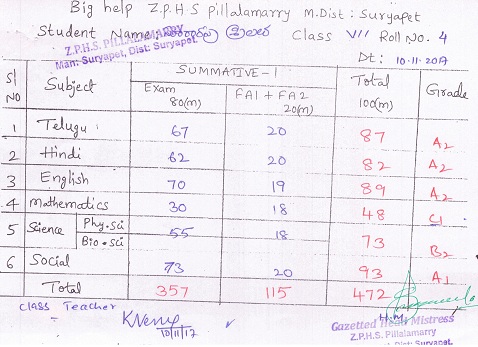 Big help Z.P.H.S Pillalamarry M.Dist: Suryapet
Student Name: Class VII Roll No. 4
Z.P.H.S. PILLALAMARRY
Man: Suryapet, Dist: Suryapet.
Dt: 10.11.2017
Sl NO Subject SUMMATIVE-1 Total 100(m) Grade
Exam 80(m) FA1 + FA2 20(m)
1 Telugu 67 20 87 A2
2 Hindi 62 20 82 A2
3 English 70 19 89 A2
4 Mathematics 30 18 48 C1
5 Science Phy.sci Bio.sci 55 18 73 B2
6 Social 73 20 93 A1
Total 357 115 472
CLASS Teacher
10/11/17
H.M
Gazetted Head Mistress
Z.P.H.S. Pillalamarry
Dist: Suryapet